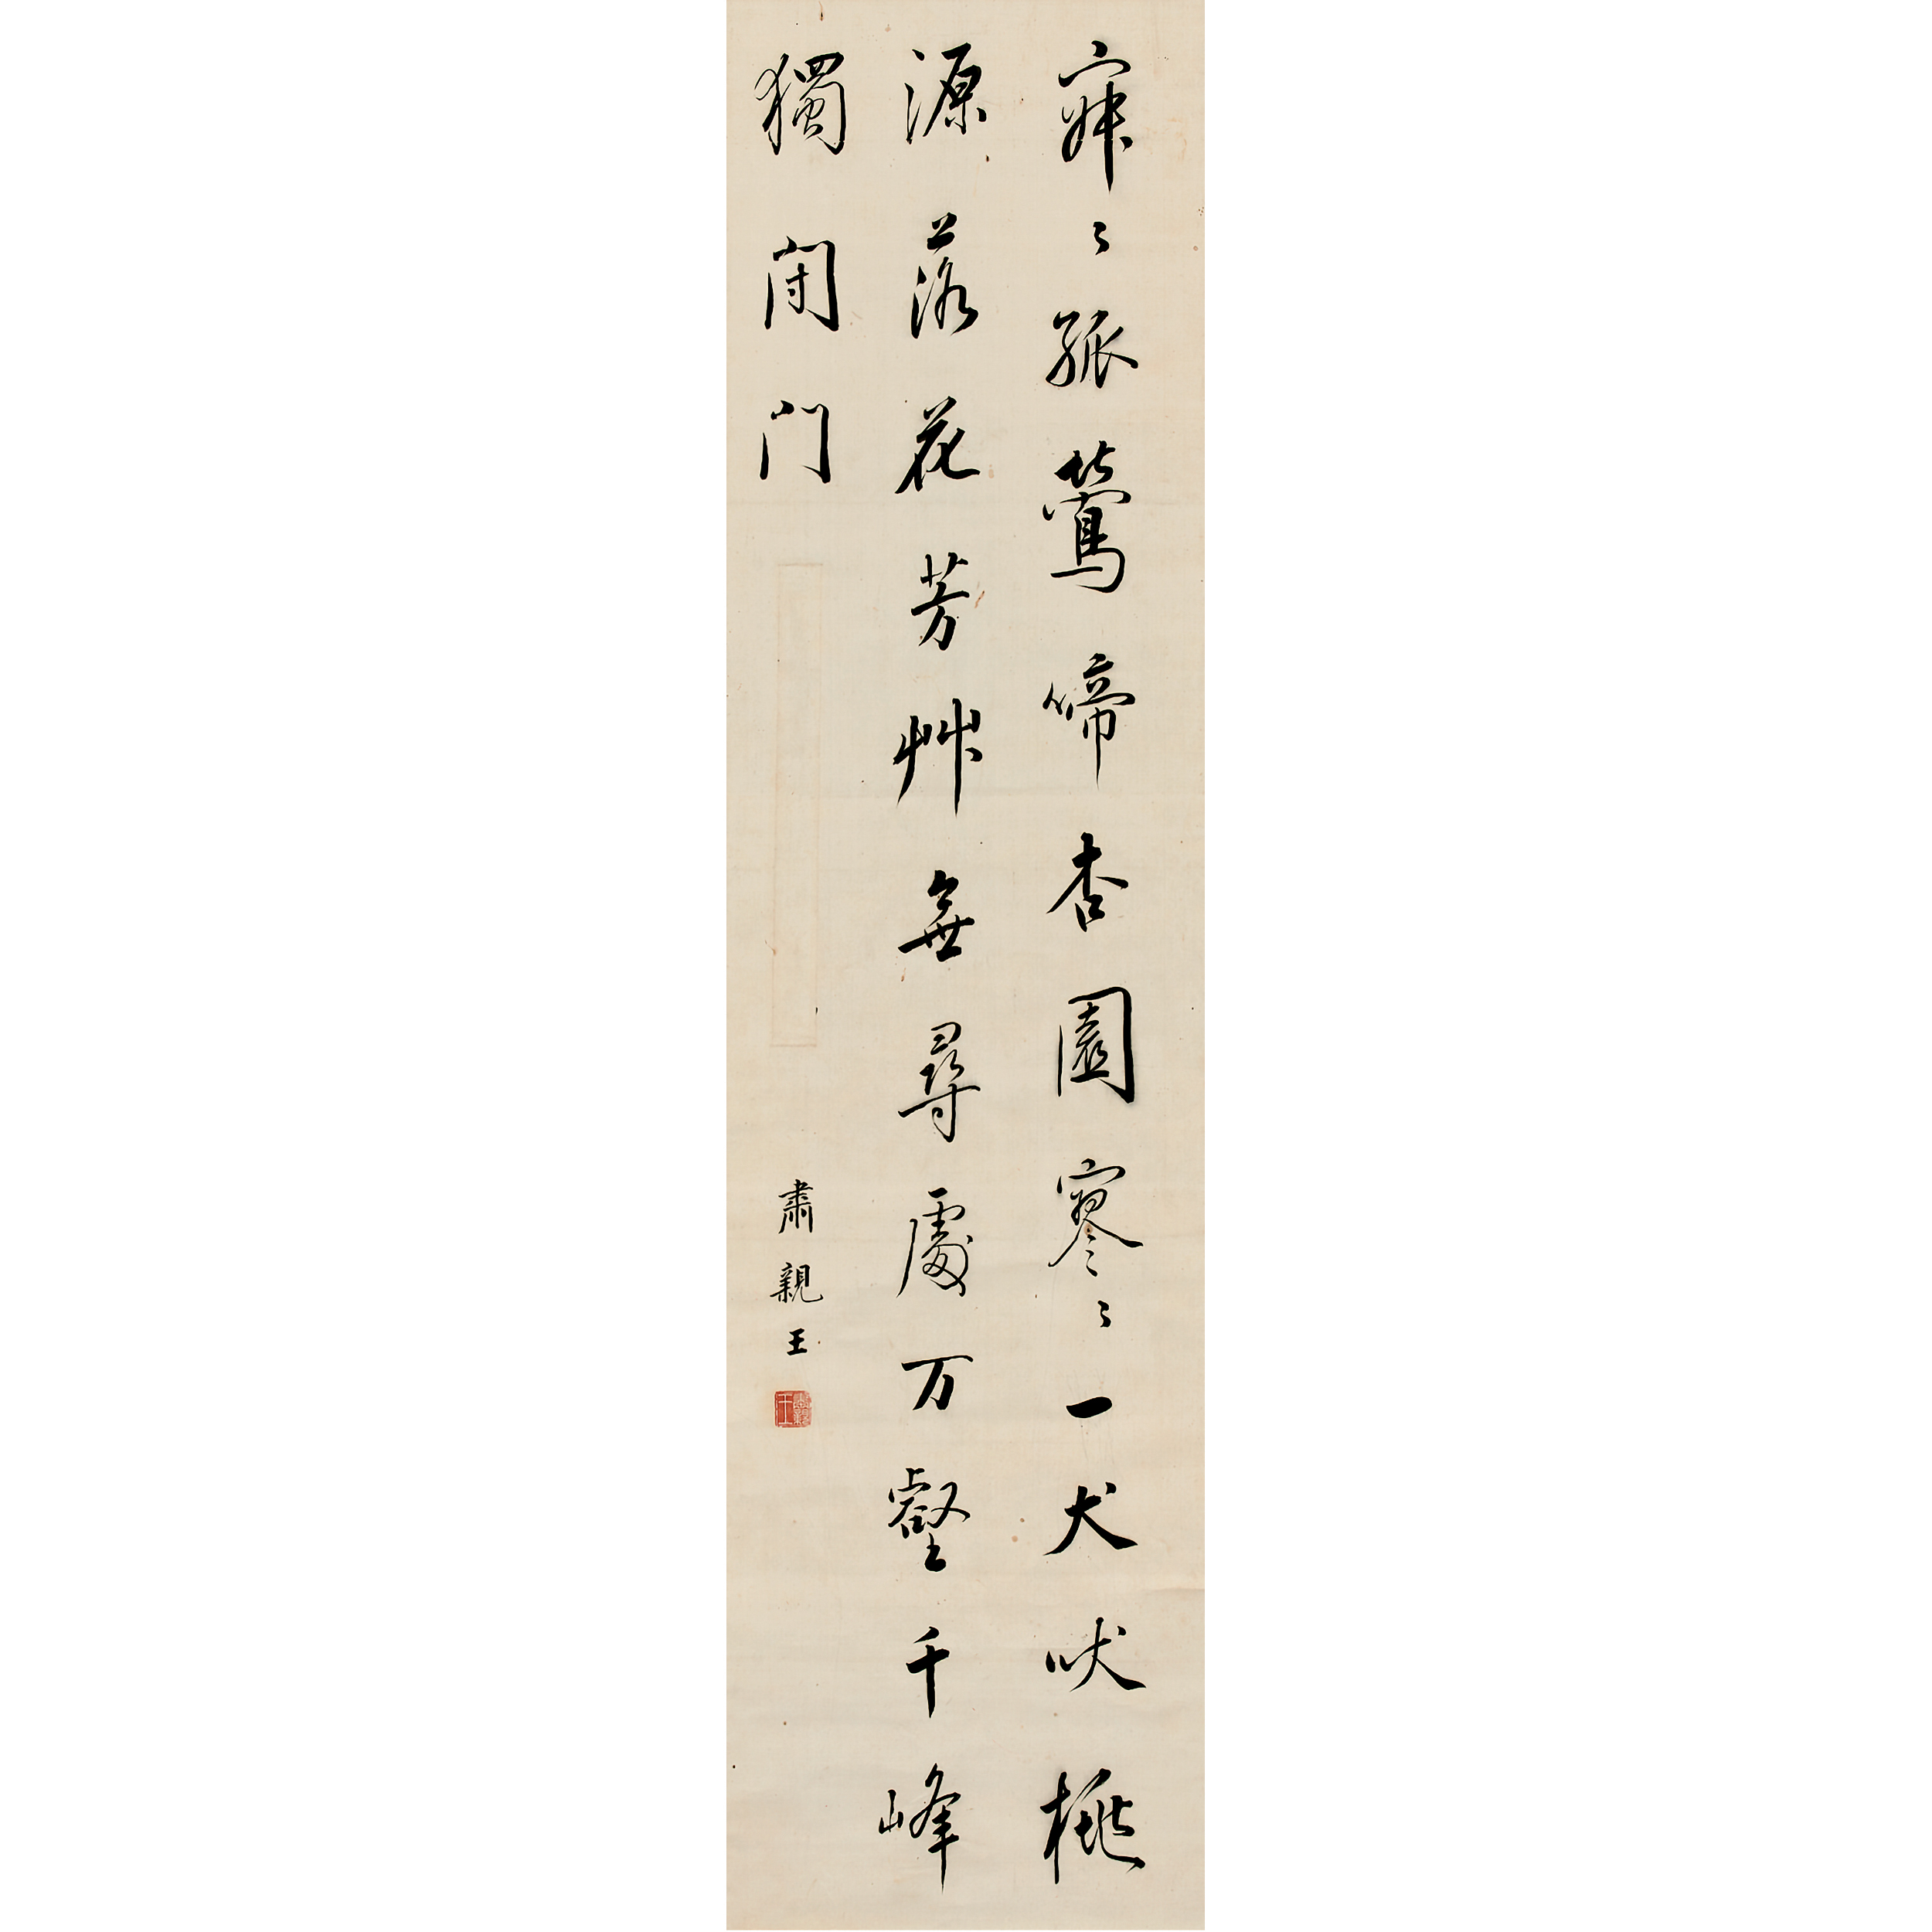 寂〻孤鶯啼杏園寥〻一犬吠桃
源落花芳艸無尋處万壑千峰
獨閉門
肅親王